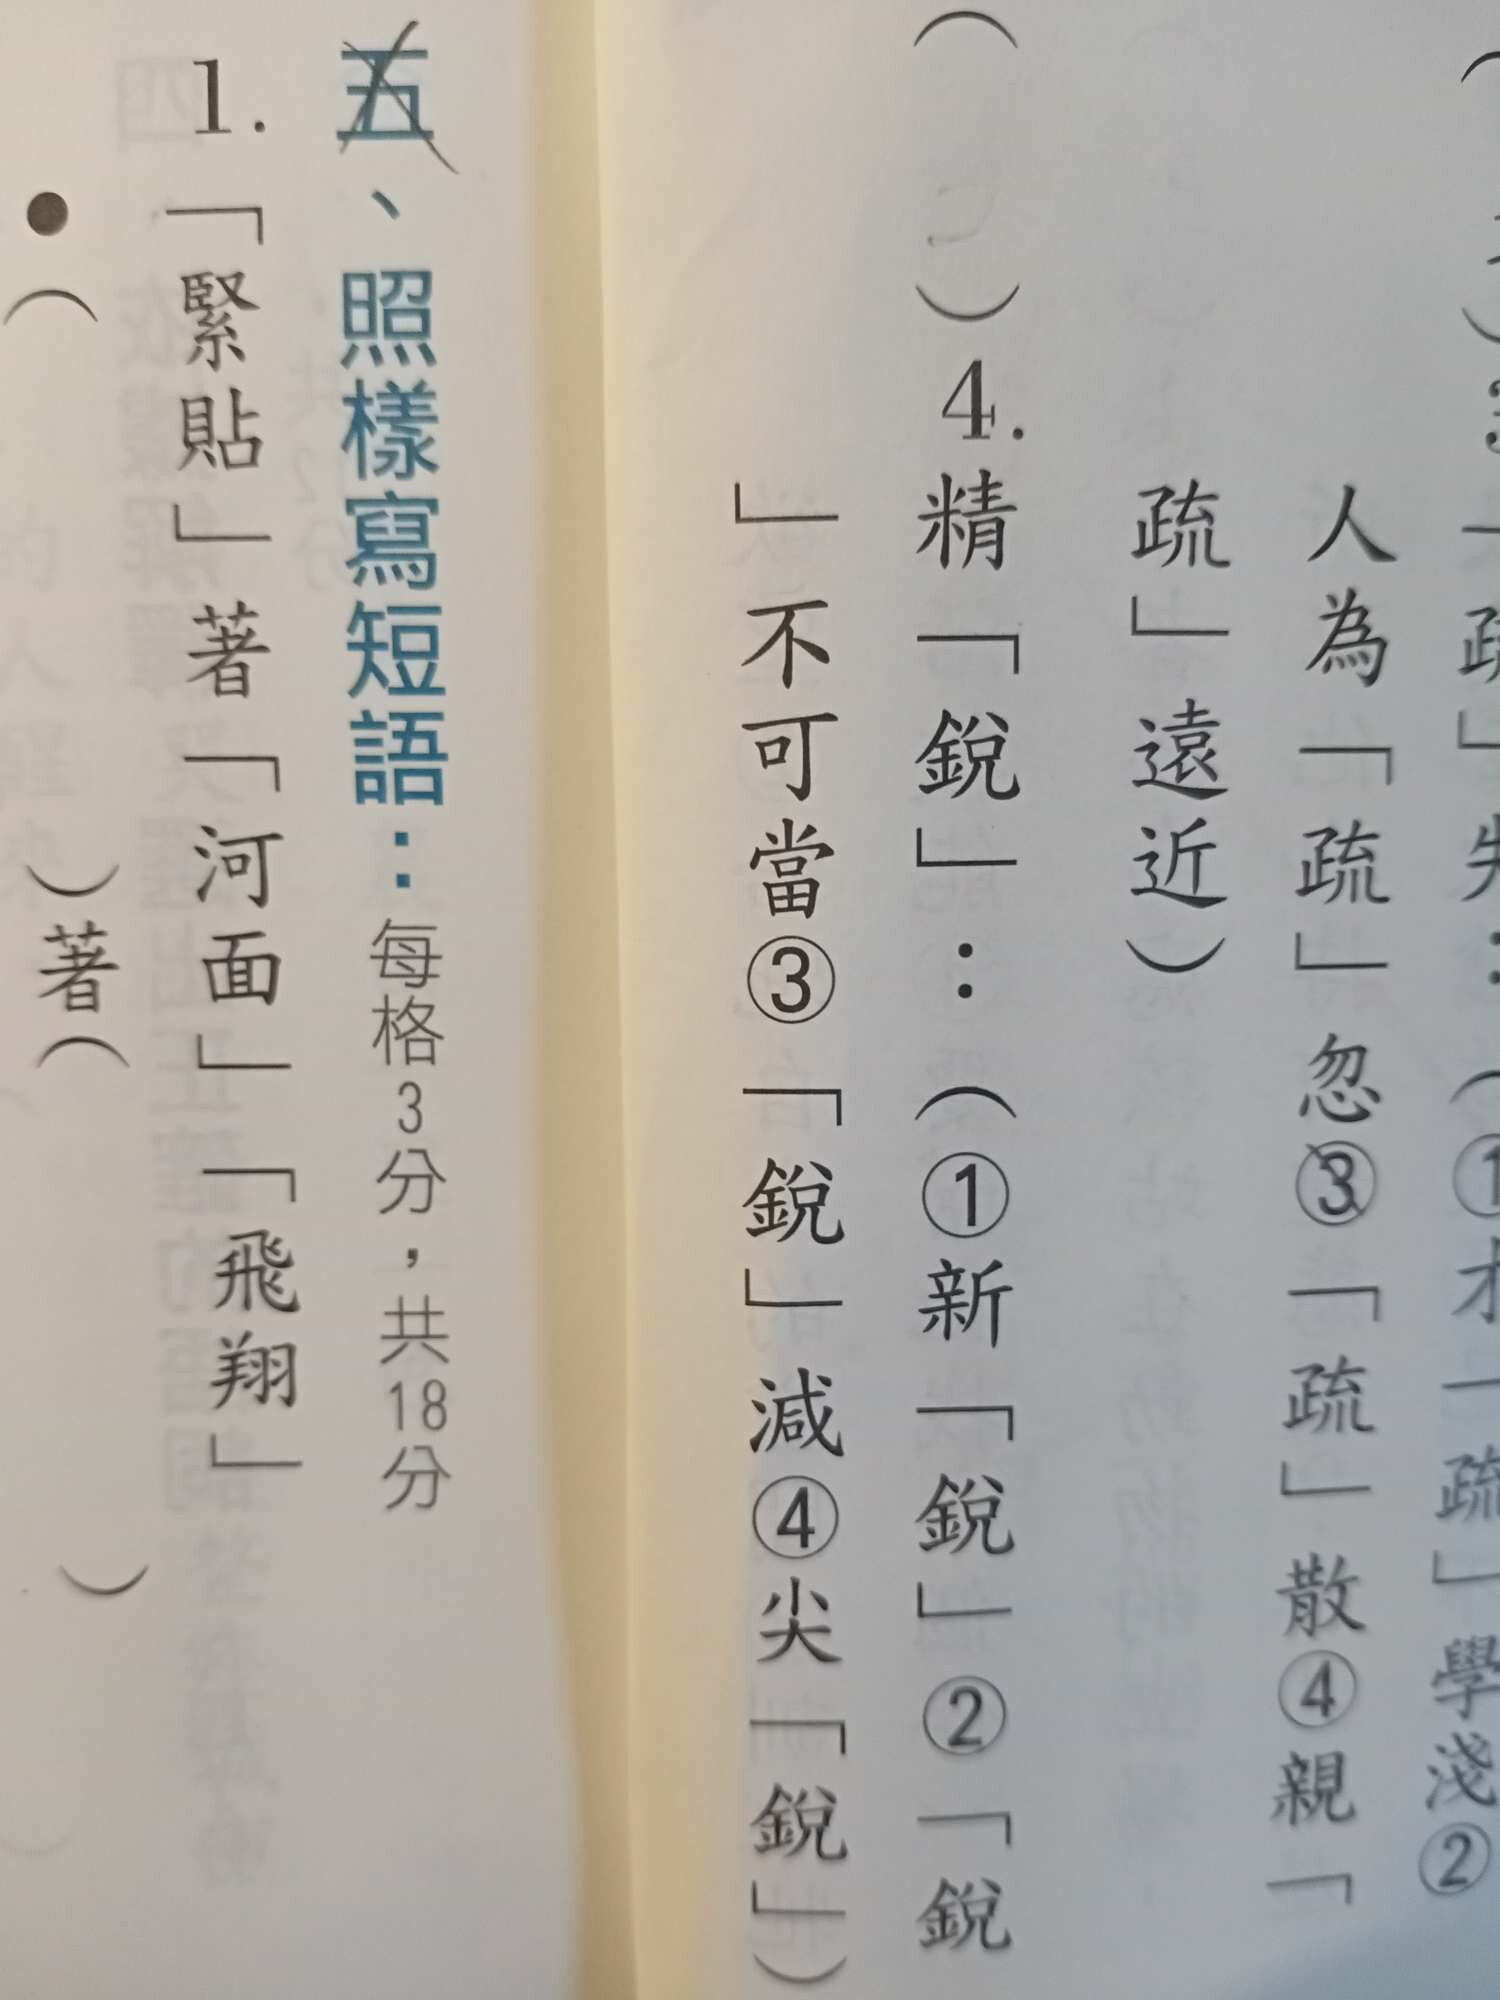 「疏」失：（①才「疏」學淺②
人為「疏」忽③「疏」散④親「
疏」遠近）
（　）4.精「銳」：（①新「銳」②「銳
」不可當③「銳」減④尖「銳」）
五、照樣寫短語：每格3分，共18分
1.「緊貼」著「河面」「飛翔」
●（　）著（　）